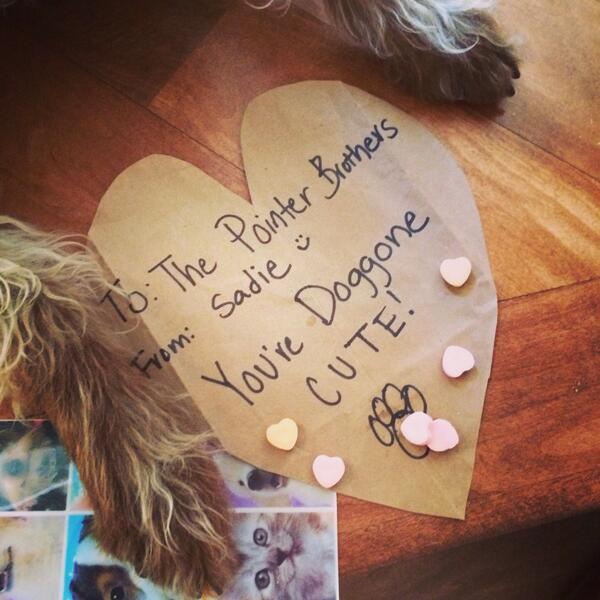 To: The Pointer Brothers
From: Sadie
You're Doggone
CUTE!